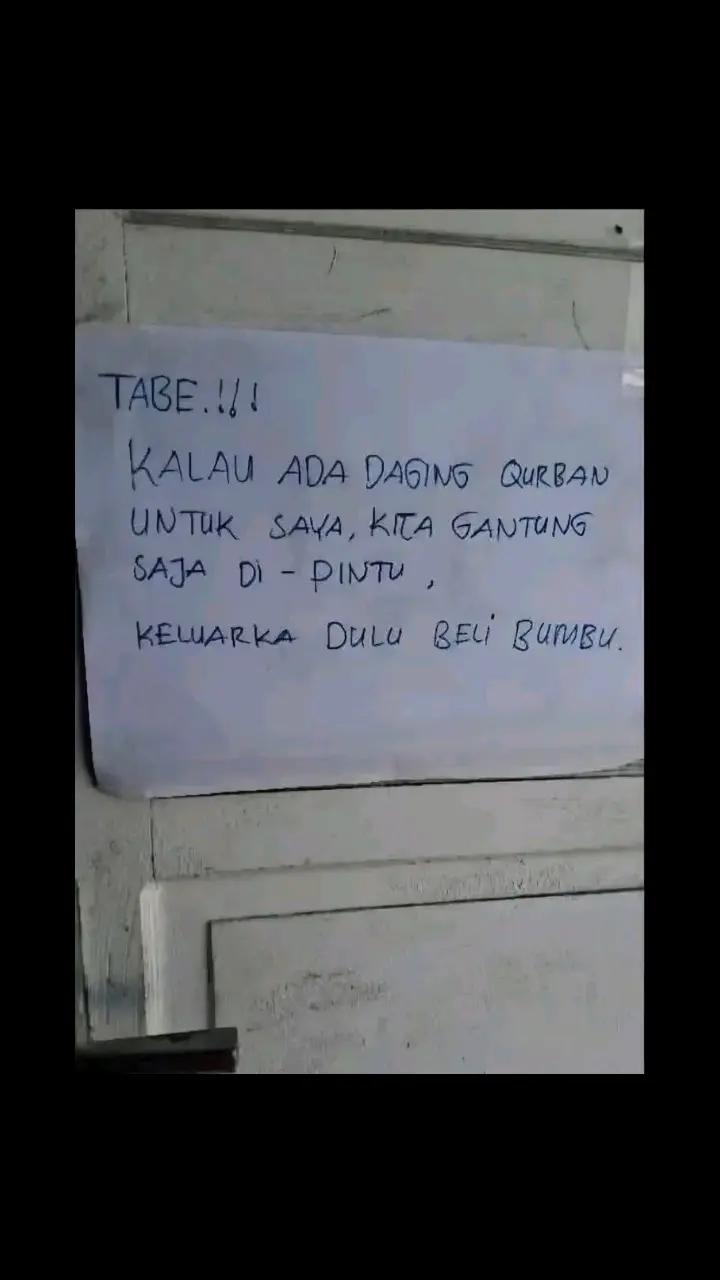 TABE.!!!
KALAU ADA DAGING QURBAN
UNTUK SAYA, KITA GANTUNG
SAJA Di - PINTU,
KELUARKA DULU BELi BUMBU.